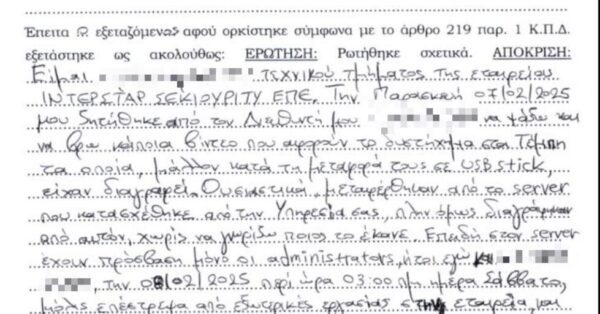 Έπειτα ο εξεταζόμενος αφού ορκίστηκε σύμφωνα με το άρθρο 219 παρ. 1 Κ.Π.Δ.
εξετάστηκε ως ακολούθως: ΕΡΩΤΗΣΗ: Ρωτήθηκε σχετικά. ΑΠΟΚΡΙΣΗ:
Είμαι τεχνικού τμήματος της εταιρείας
ΙΝΤΕΡΣΤΑΡ ΣΕΚΙΟΥΡΙΤΥ ΕΠΕ. Την Παρασκευή 07/02/2025
μου ζητήθηκε από τον Διευθυντή μου να ψάξω και
να βρω κάποια βίντεο που αφορούν το δυστύχημα στα Τέμπη
τα οποία, μάλλον κατά τη μεταφορά τους σε USB stick,
είχαν διαγραφεί. Ουσιαστικά, μεταφέρθηκαν από το server
που κατασχέθηκε από την Υπηρεσία σας, πλην όμως διαγράφηκαν
από αυτόν, χωρίς να γνωρίζω ποιος το έκανε. Επειδή στον server
έχουν πρόσβαση μόνο οι administrators, ήτοι εγώ και
, την 08/02/2025 περί ώρα 03:00 πμ ημέρα Σάββατο,
μόλις επέστρεψα από εξωτερικές εργασίες στην εταιρεία, και